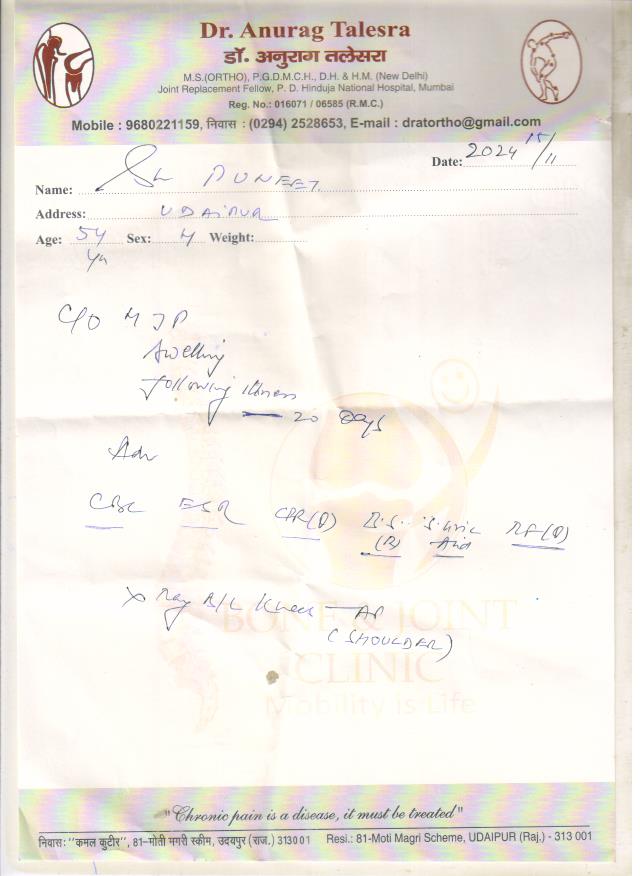 Dr. Anurag Talesra
डॉ. अनुराग तलेसरा
M.S.(ORTHO), P.G.D.M.C.H., D.H. & H.M. (New Delhi)
Joint Replacement Fellow, P. D. Hinduja National Hospital, Mumbai
Reg. No.: 016071 / 06585 (R.M.C.)
Mobile : 9680221159, निवास : (0294) 2528653, E-mail : dratortho@gmail.com
Date: 2024 15/11
Name: Sh PUNEET
Address: UDAIPUR
Age: 54 Sex: M Weight:
Yr
C/O MJP
Swelling
following illness
— 20 Days
Adv
CBC ESR CPR(Q) B.S. S. Uric RF(Q)
(R) Acid
X Ray B/L Knees — AP
(SHOULDER)
BONE & JOINT
CLINIC
Mobility is Life
"Chronic pain is a disease, it must be treated"
निवास: "कमल कुटीर", 81-मोती मगरी स्कीम, उदयपुर (राज.) 313001 Resi.: 81-Moti Magri Scheme, UDAIPUR (Raj.) - 313 001